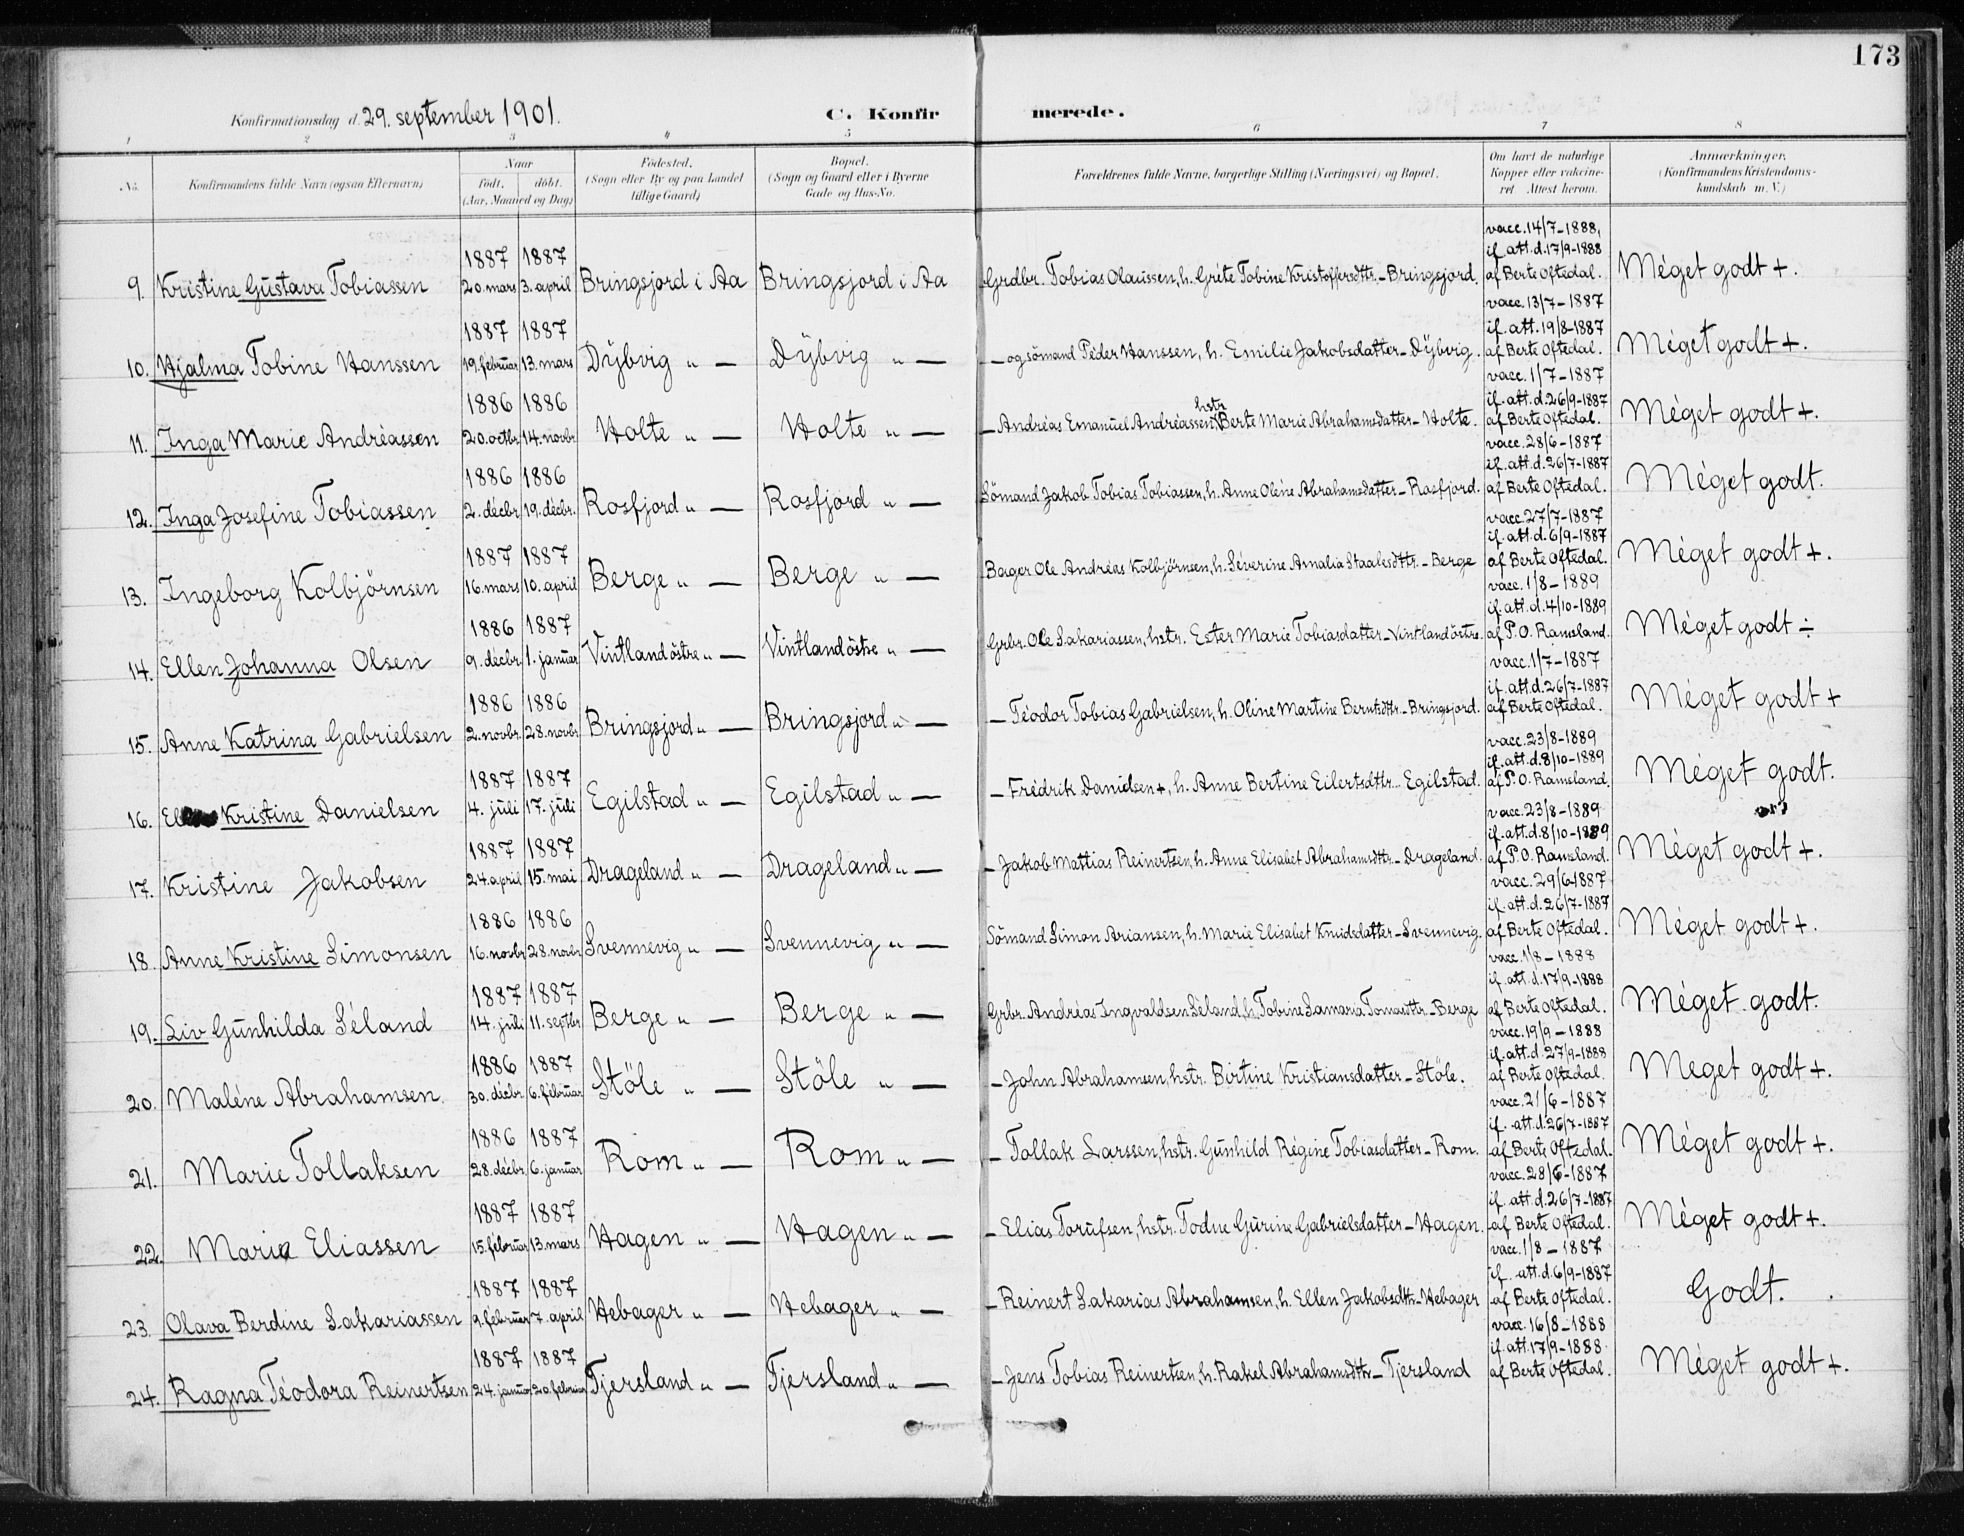 173
Konfirmationsdag d. 29. september 1901.
C. Konfirmerede.
1 2 3 4 5 6 7 8
No. Konfirmandens fulde Navn (ogsaa Efternavn) Naar født, døbt. (Aar, Maaned og Dag) Fødested. (Sogn eller By og paa Landet tillige Gaard) Bopæl. (Sogn og Gaard eller i Byerne Gade og Hus-No. Forældrenes fulde Navne, borgerlige Stilling (Næringsvei) og Bopæl. Om havt de naturlige Kopper eller vakcineret. Attest herom. Anmærkninger. (Konfirmandens Kristendomskundskab m. V.)
9. Kristine Gustava Tobiassen 1887 20. mars 1887 3. april Bringsjord i Aa Bringsjord i Aa Grdbr. Tobias Olaussen, h. Gréte Tobine Kristoffersdttr. - Bringsjord. vacc. 14/7-1888, if. att. d. 17/9-1888 af Berte Oftedal. Méget godt +.
10. Hjalma Tobine Hanssen 1887 19. februar 1887 13. mars Dybvig " — Dybvig " — — og sömand Péder Hanssen, h. Emilie Jakobsdatter - Dybvig. vacc. 13/7-1887 if. att. 19/8-1887 af Berte Oftedal. Méget godt +.
11. Inga Marie Andréassen 1886 20. octbr. 1886 14. novbr. Holte " — Holte " — — Andréas Emanuel Andréassen, hstr. Berte Marie Abrahamsdatter - Holte. vacc. 1/7-1887 if. att. d. 26/9-1887 af Berte Oftedal. Méget godt +.
12. Inga Josefine Tobiassen 1886 2. décbr. 1886 19. décbr. Rosfjord " — Rosfjord " — Sömand Jakob Tobias Tobiassen, h. Anne Oléne Abrahamsdatter - Rosfjord. vacc. 28/6-1887 if. att. d. 26/7-1887 af Berte Oftedal. Méget godt.
13. Ingeborg Kolbjörnsen 1887 16. mars 1887 10. april Berge " — Berge " — Bager Ole Andréas Kolbjörnsen, h. Séverine Amalia Staalesdttr. - Berge vacc. 27/7-1887 if. att. d. 6/9-1887 af Berte Oftedal. Méget godt +.
14. Ellen Johanna Olsen 1886 9. décbr. 1887 1. januar Vintlandöstre " — Vintlandöstre " — Grbr. Ole Sakariassen, hstr. Ester Marie Tobiasdatter - Vintlandöstre. vacc. 1/8-1889 if. att. d. 4/10-1889 af P. O. Ramsland. Méget godt ÷
15. Anne Katrina Gabrielsen 1886 2. novbr. 1886 28. novbr. Bringsjord " — Bringsjord " — — Téodor Tobias Gabrielsen, h. Oline Martine Berntsdttr. - Bringsjord. vacc. 1/7-1887 if. att. d. 26/7-1887 af Berte Oftedal. Méget godt +
16. Kristine Danielsen 1887 4. juli 1887 17. juli Egilstad " — Egilstad " — — Frédrik Danielsen +, h. Anne Bertine Eilertsdttr. - Egilstad. vacc. 23/8-1889 if. att. d. 8/10-1889 af P. O. Ramsland. Méget godt.
17. Kristine Jakobsen 1887 24. april 1887 15. mai Drageland " — Drageland " — — Jakob Mattias Reinertsen, h. Anne Elisabet Abrahamsdttr. - Drageland. vacc. 23/8-1889 if. att. d. 8/10-1889 af P. O. Ramsland. Méget godt +.
18. Anne Kristine Simonsen 1886 16. novbr. 1886 28. novbr. Svennevig " — Svennevig " — Sömand Simon Ariansen, h. Marie Elisabet Knudsdatter - Svennevig. vacc. 29/6-1887 if. att. d. 26/7-1887 af Berte Oftedal. Méget godt +.
19. Liv Gunhilda Séland 1887 14. juli 1887 11. septbr. Berge " — Berge " — Grbr. Andréas Ingvaldsen Séland, h. Tobine Samaria Tomasdttr. - Berge vacc. 1/8-1888 if. att. d. 17/9-1888 af Berte Oftedal. Méget godt.
20. Maléne Abrahamsen 1886 30. décbr. 1887 6. februar Stöle " — Stöle " — — John Abrahamsen, hstr. Birtine Kristiansdatter - Stöle. vacc. 19/9-1888 if. att. d. 27/9-1888 af Berte Oftedal. Meget godt +.
21. Marie Tollaksen 1886 28. décbr. 1887 6. januar Rom " — Rom " — — Tollak Larssen, hstr. Gunhild Régine Tobiasdatter - Rom. vacc. 21/6-1887 if. att. d. 26/7-1887 af Berte Oftedal. Méget godt +.
22. Marie Eliassen 1887 15. februar 1887 13. mars Hagen " — Hagen " — — Elias Torufsen, hstr. Todne Gurine Gabrielsdatter - Hagen. vacc. 28/6-1887 if. att. d. 26/7-1887 af Berte Oftedal. Méget godt +.
23. Olava Berdine Sakariassen 1887 9. februar 1887 7. april Hebager " — Hebager " — — Reinert Sakarias Abrahamsen, h. Ellen Jakobsdttr. - Hebager vacc. 1/8-1887 if. att. d. 6/9-1887 af Berte Oftedal. Godt.
24. Ragna Téodora Reinertsen 1887 24. januar 1887 20. februar Tjersland " — Tjersland " — — Jens Tobias Reinertsen, h. Rakel Abrahamsdttr - Tjersland vacc. 16/8-1888 if. att. 17/9-1888 af Berte Oftedal. Méget godt +.